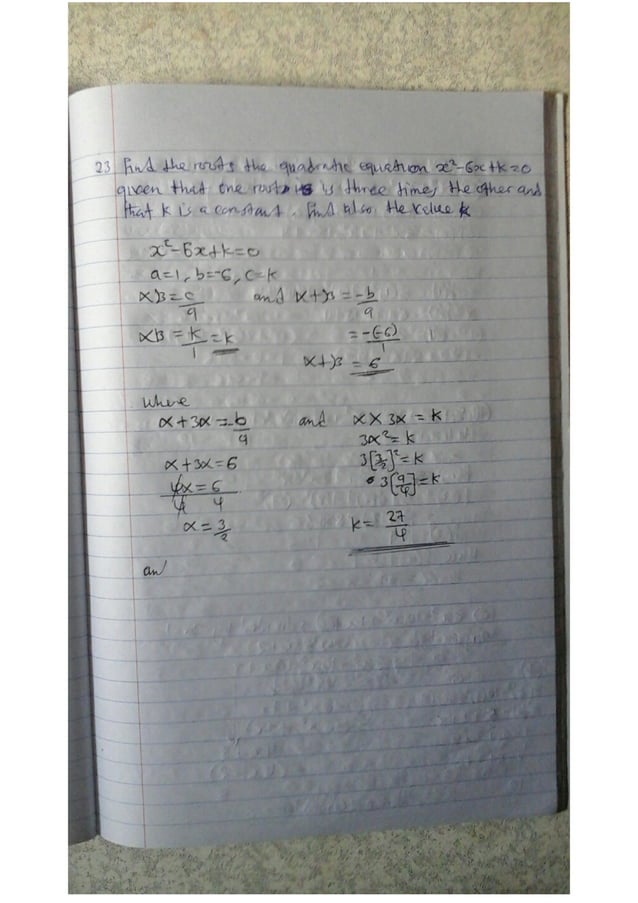 23 Find the roots the quadratic equation x²-6x+k=0
given that one root is is three times the other and
that k is a constant. Find also the value k
x²-6x+k=0
a=1, b=-6, c=k
αβ=c/a and α+β=-b/a
αβ=k/1=k =-(-6)/1
α+β=6
where
α+3α=-b/a and α×3α=k
3α²=k
α+3α=6 3[3/2]²=k
4x/4=6/4 3[9/4]=k
α=3/2 k=27/4
an